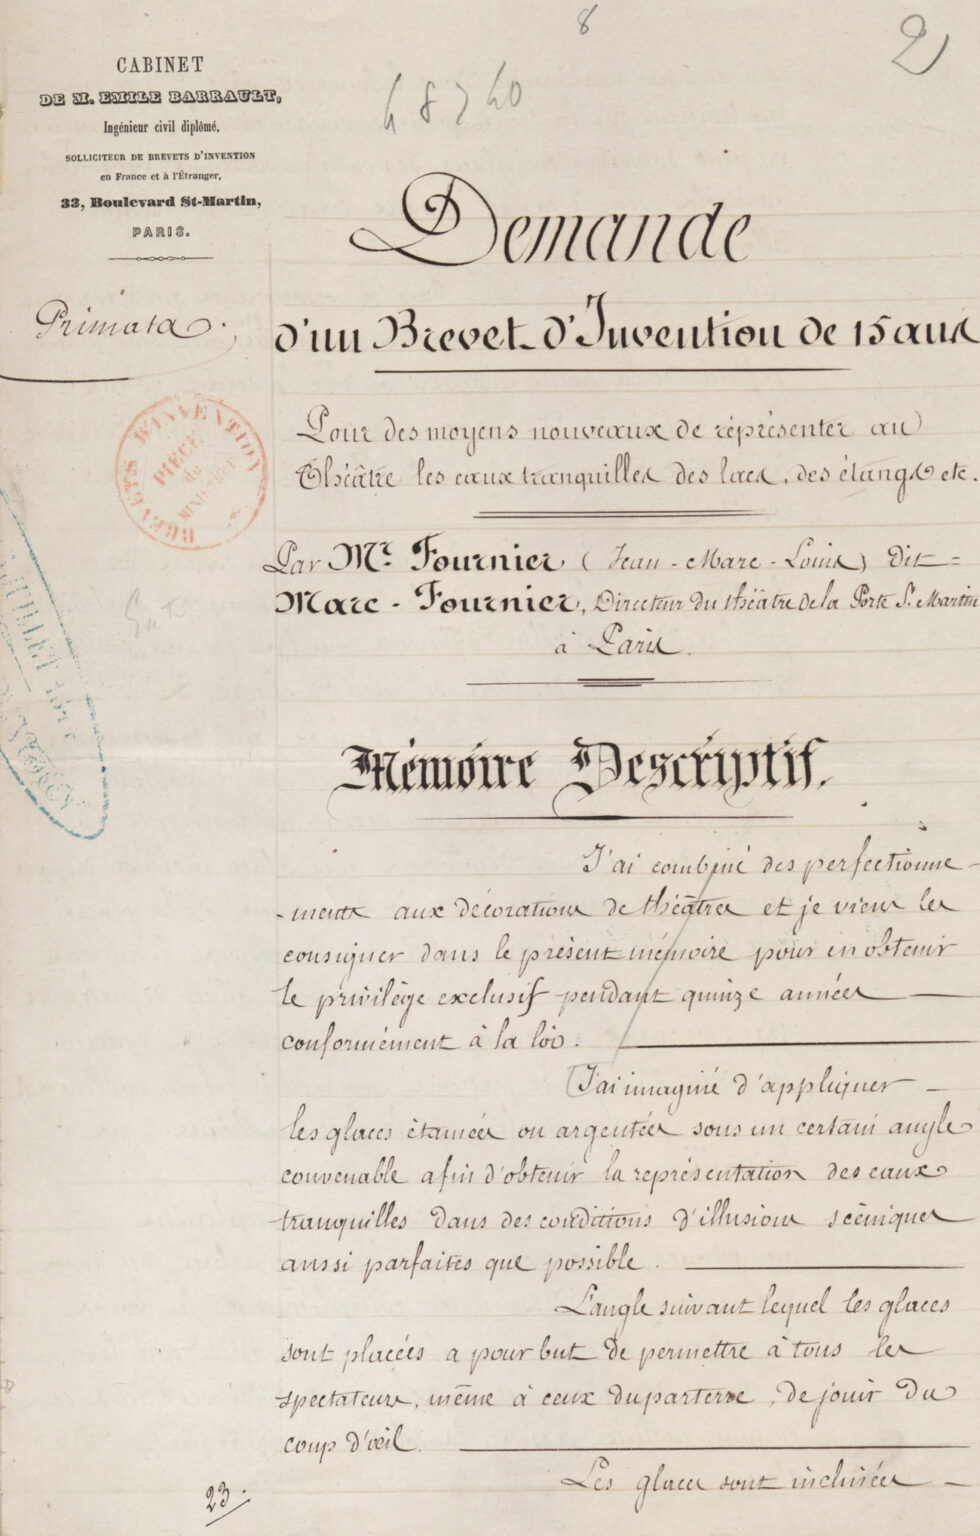 8
2
48740
CABINET
DE M. EMILE BARRAULT,
Ingénieur civil diplômé,
SOLLICITEUR DE BREVETS D'INVENTION
en France et à l'Étranger,
33, Boulevard St-Martin,
PARIS.
Primata.
Demande
d'un Brevet d'Invention de 15 ans
Pour des moyens nouveaux de réprésenter au
Théâtre les eaux tranquilles des lacs, des étangs etc.
BREVETS D'INVENTION
PIÈCE
du
Par Mr. Fournier (Jean-Marc-Louis) dit=
Marc-Fournier, Directeur du théâtre de la Porte St. Martin
à Paris.
Mémoire Descriptif.
J'ai combiné des perfectionne-
-ments aux décorations de théâtres et je viens les
consigner dans le présent mémoire pour en obtenir
le privilège exclusif pendant quinze années
conformément à la loi.
J'ai imaginé d'appliquer
les glaces étamées ou argentées sous un certain angle
convenable afin d'obtenir la représentation des eaux
tranquilles dans des conditions d'illusions scéniques
aussi parfaites que possible.
L'angle suivant lequel les glaces
sont placées a pour but de permettre à tous les
spectateurs, même à ceux du parterre, de jouir du
coup d'œil.
Les glaces sont inclinées
23.